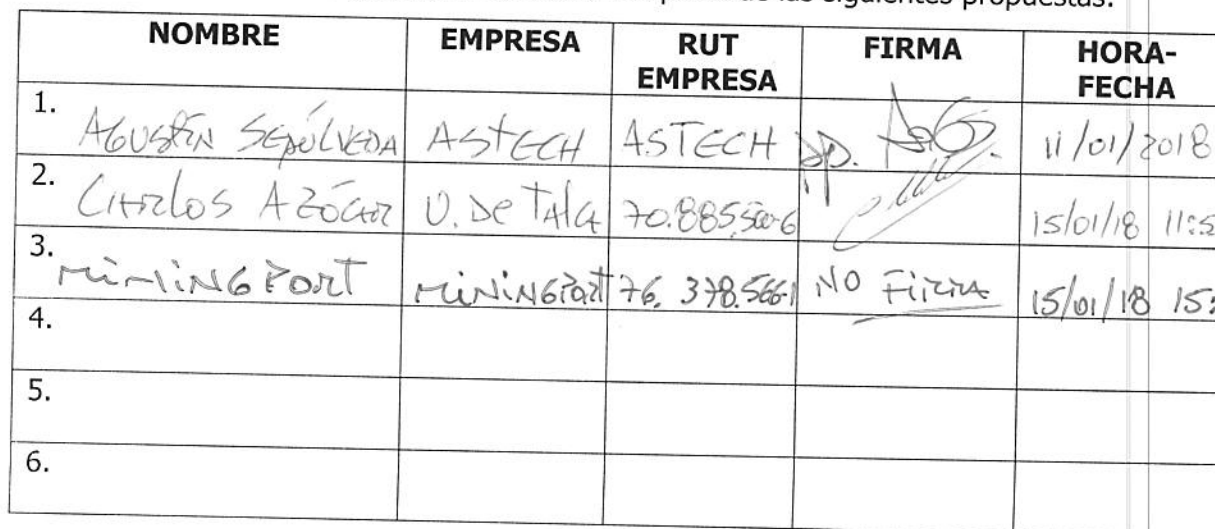 las siguientes propuestas:
NOMBRE EMPRESA RUT EMPRESA FIRMA HORA-FECHA
1. AGUSTÍN SEPÚLVEDA ASTECH ASTECH pp. 11/01/2018
2. CARLOS AZÓCAR U. De TAlca 70.885.500-6 15/01/18
3. MiNiNG PORT MiNiNGPORT 76. 378.566-1 NO FiRMA 15/01/18
4.
5.
6.